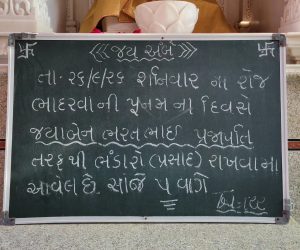 જય અંબે
તા. ૨૬/૯/૨૬ શનિવાર ના રોજ
ભાદરવાની પુનમ ના દિવસે
જયાબેન ભરતભાઈ પ્રજાપતિ
તરફથી ભંડારો (પ્રસાદ) રાખવામા
આવેલ છે. સાંજે ૫ વાગે